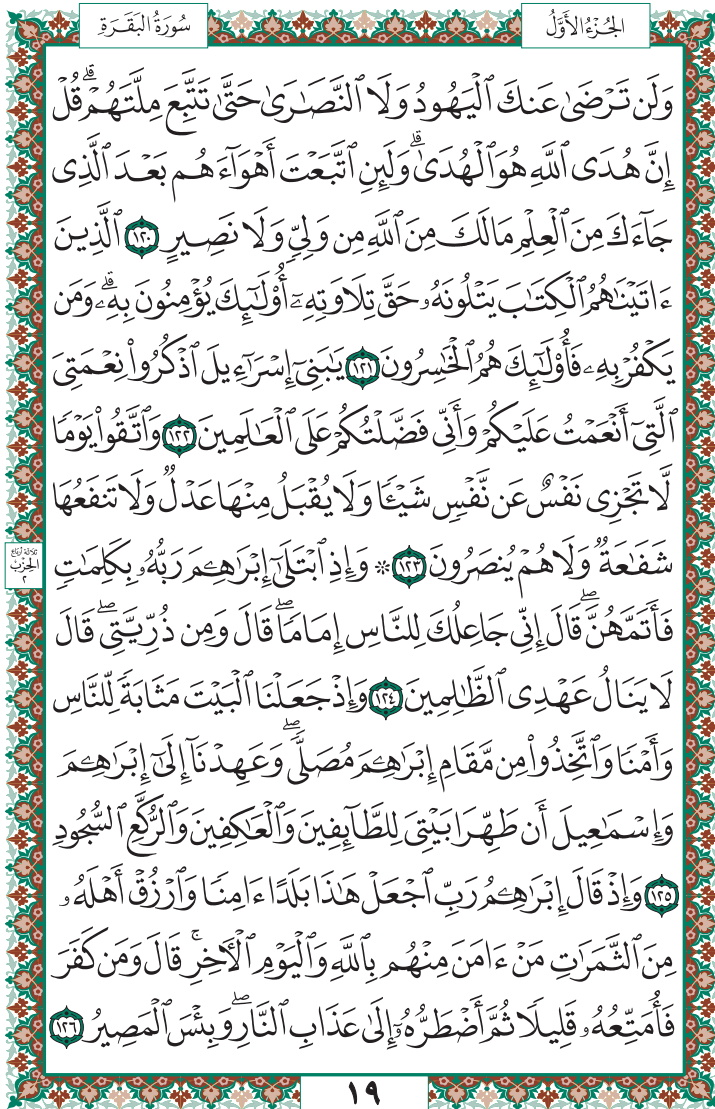 الجُزْءُ الأَوَّلُ
سُورَةُ البَقَرَةِ
وَلَن تَرْضَىٰ عَنكَ ٱلْيَهُودُ وَلَا ٱلنَّصَـٰرَىٰ حَتَّىٰ تَتَّبِعَ مِلَّتَهُمْۗ قُلْ
إِنَّ هُدَى ٱللَّهِ هُوَ ٱلْهُدَىٰۗ وَلَئِنِ ٱتَّبَعْتَ أَهْوَآءَهُم بَعْدَ ٱلَّذِى
جَآءَكَ مِنَ ٱلْعِلْمِ مَا لَكَ مِنَ ٱللَّهِ مِن وَلِىٍّ وَلَا نَصِيرٍ ١٢٠ ٱلَّذِينَ
ءَاتَيْنَـٰهُمُ ٱلْكِتَـٰبَ يَتْلُونَهُۥ حَقَّ تِلَاوَتِهِۦٓ أُو۟لَـٰٓئِكَ يُؤْمِنُونَ بِهِۦۗ وَمَن
يَكْفُرْ بِهِۦ فَأُو۟لَـٰٓئِكَ هُمُ ٱلْخَـٰسِرُونَ ١٢١ يَـٰبَنِىٓ إِسْرَٰٓءِيلَ ٱذْكُرُوا۟ نِعْمَتِىَ
ٱلَّتِىٓ أَنْعَمْتُ عَلَيْكُمْ وَأَنِّى فَضَّلْتُكُمْ عَلَى ٱلْعَـٰلَمِينَ ١٢٢ وَٱتَّقُوا۟ يَوْمًا
لَّا تَجْزِى نَفْسٌ عَن نَّفْسٍ شَيْـًٔا وَلَا يُقْبَلُ مِنْهَا عَدْلٌ وَلَا تَنفَعُهَا
شَفَـٰعَةٌ وَلَا هُمْ يُنصَرُونَ ١٢٣ ۞ وَإِذِ ٱبْتَلَىٰٓ إِبْرَٰهِـۧمَ رَبُّهُۥ بِكَلِمَـٰتٍ
فَأَتَمَّهُنَّۖ قَالَ إِنِّى جَاعِلُكَ لِلنَّاسِ إِمَامًاۖ قَالَ وَمِن ذُرِّيَّتِىۖ قَالَ
لَا يَنَالُ عَهْدِى ٱلظَّـٰلِمِينَ ١٢٤ وَإِذْ جَعَلْنَا ٱلْبَيْتَ مَثَابَةً لِّلنَّاسِ
وَأَمْنًا وَٱتَّخِذُوا۟ مِن مَّقَامِ إِبْرَٰهِـۧمَ مُصَلًّىۖ وَعَهِدْنَآ إِلَىٰٓ إِبْرَٰهِـۧمَ
وَإِسْمَـٰعِيلَ أَن طَهِّرَا بَيْتِىَ لِلطَّآئِفِينَ وَٱلْعَـٰكِفِينَ وَٱلرُّكَّعِ ٱلسُّجُودِ
١٢٥ وَإِذْ قَالَ إِبْرَٰهِـۧمُ رَبِّ ٱجْعَلْ هَـٰذَا بَلَدًا ءَامِنًا وَٱرْزُقْ أَهْلَهُۥ
مِنَ ٱلثَّمَرَٰتِ مَنْ ءَامَنَ مِنْهُم بِٱللَّهِ وَٱلْيَوْمِ ٱلْـَٔاخِرِۚ قَالَ وَمَن كَفَرَ
فَأُمَتِّعُهُۥ قَلِيلًا ثُمَّ أَضْطَرُّهُۥٓ إِلَىٰ عَذَابِ ٱلنَّارِۖ وَبِئْسَ ٱلْمَصِيرُ ١٢٦
ثلاثة أرباع
الحِزْب
٢
١٩